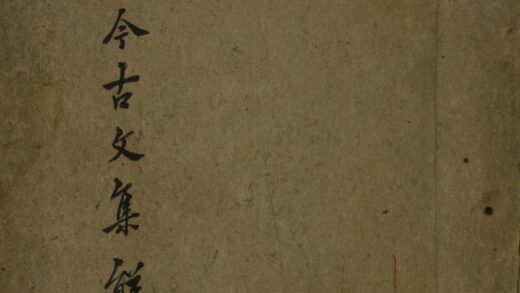 今古文集